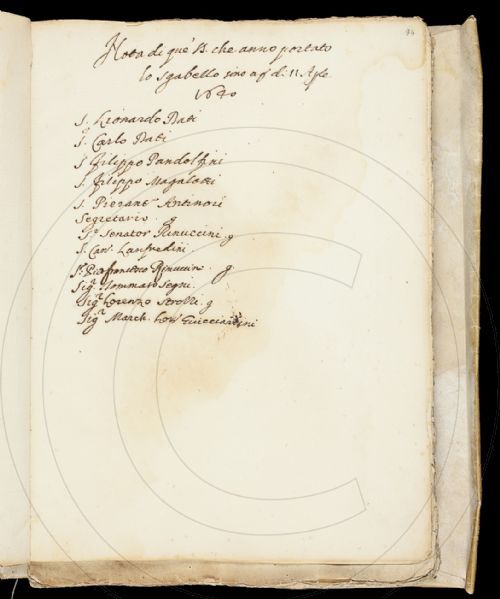 Nota di que' SS. che anno portato
lo sgabello sino a q.º dì 11 Agle
1640
S. Leonardo Dati
S. Carlo Dati
S. Filippo Pandolfini
S. Filippo Magalotti
S. Pierant.º Antinori
Segretario g
S.r Senator Rinuccini g
S. Cav. Lanfredini
S.r Pierfrancesco Rinuccini g
Sig.r Tommaso Segni
Sig.r Lorenzo Strozzi g
Sig.r March. Guicciardini